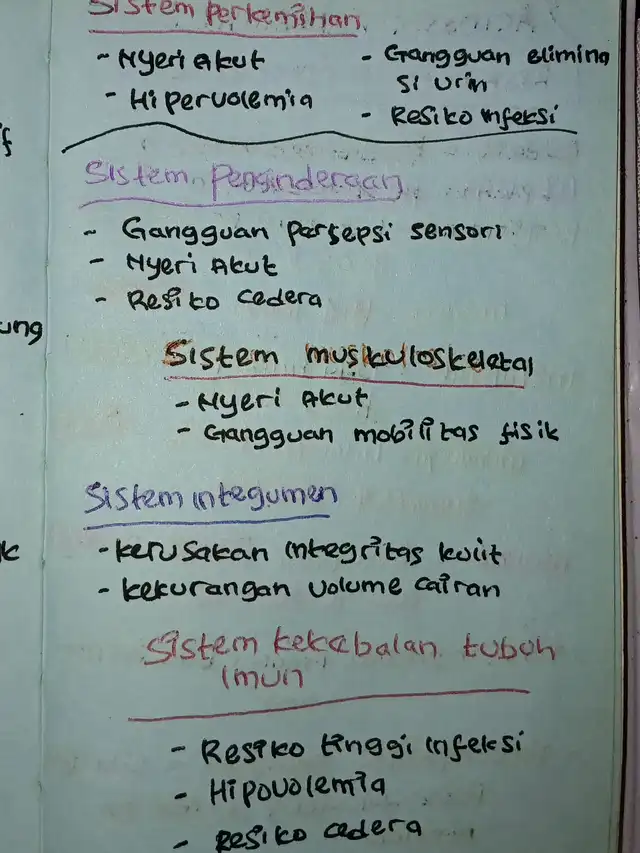 Sistem Perkemihan
- Nyeri Akut
- Hipervolemia
- Gangguan elimina
si urin
- Resiko infeksi
Sistem Penginderaan
- Gangguan Persepsi sensori
- Nyeri Akut
- Resiko cedera
Sistem muskuloskeletal
- Nyeri Akut
- Gangguan mobilitas fisik
Sistem integumen
- kerusakan integritas kulit
- kekurangan volume cairan
Sistem kekebalan tubuh
imun
- Resiko tinggi infeksi
- Hipovolemia
- Resiko cedera
ung